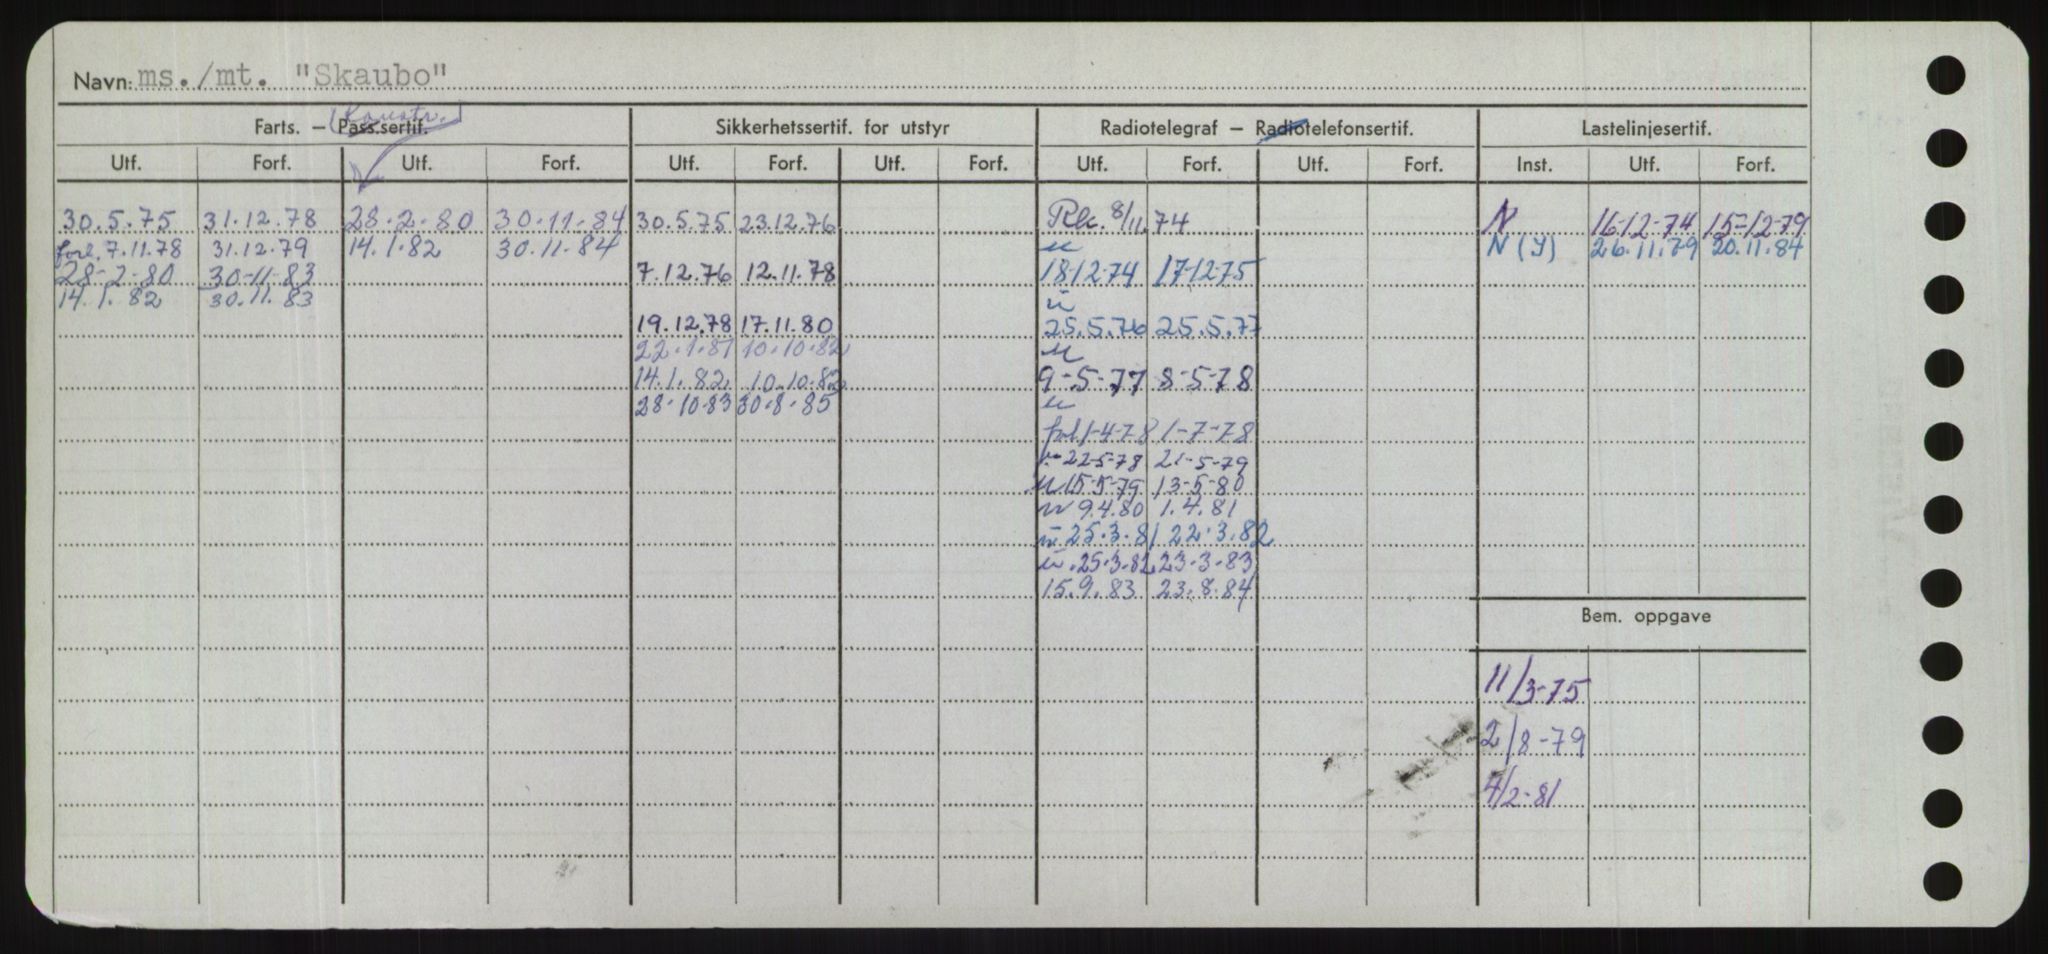 Navn: ms./mt. "Skaubo"
Farts. — Pass.sertif. (Konstr.) Sikkerhetssertif. for utstyr Radiotelegraf — Radiotelefonsertif. Lastelinjesertif.
Utf. Forf. Utf. Forf. Utf. Forf. Utf. Forf. Utf. Forf. Utf. Forf. Inst. Utf. Forf.
30.5.75 31.12.78 28-2-80 30-11-84 30.5.75 23.12.76 8/11.74 N 16-12-74 15-12-79
forl. 7.11.78 31.12.79 14.1.82 30.11.84 N (Y) 26.11.79 20.11.84
28-2-80 30-11-83 7.12.76 12.11.78 18-12-74 17-12-75
14.1.82 30.11.83
19.12.78 17.11.80 25.5.76 25.5.77
22.1.81 10.10.82
14.1.82 10.10.82 9-5-77 8-5-78
28.10.83 30.8.85
forl 1-4-78 1-7-78
22-5-78 21-5-79
15-5-79 13-5-80
9.4.80 1.4.81
25.3.81 22.3.82
25.3.82 23.3.83
15.9.83 23.8.84
Bem. oppgave
11/3-75
2/8-79
4/2-81